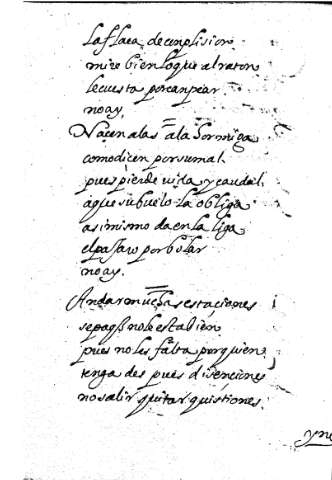 la flaca de conplision
mire bien lo que al raton
le cuesta por canpear
no ay.
Nacen alas a la hormiga
como dicen por su mal
pues pierde vida y caudal
a que su buelo la obliga
asimismo da en la liga
el pasaro por bolar
no ay.
Andar muchas estaciones
se pa q̃ no le esta bien
pues no les falta por quien
tenga despues disenciones
no salir quitar quistiones.